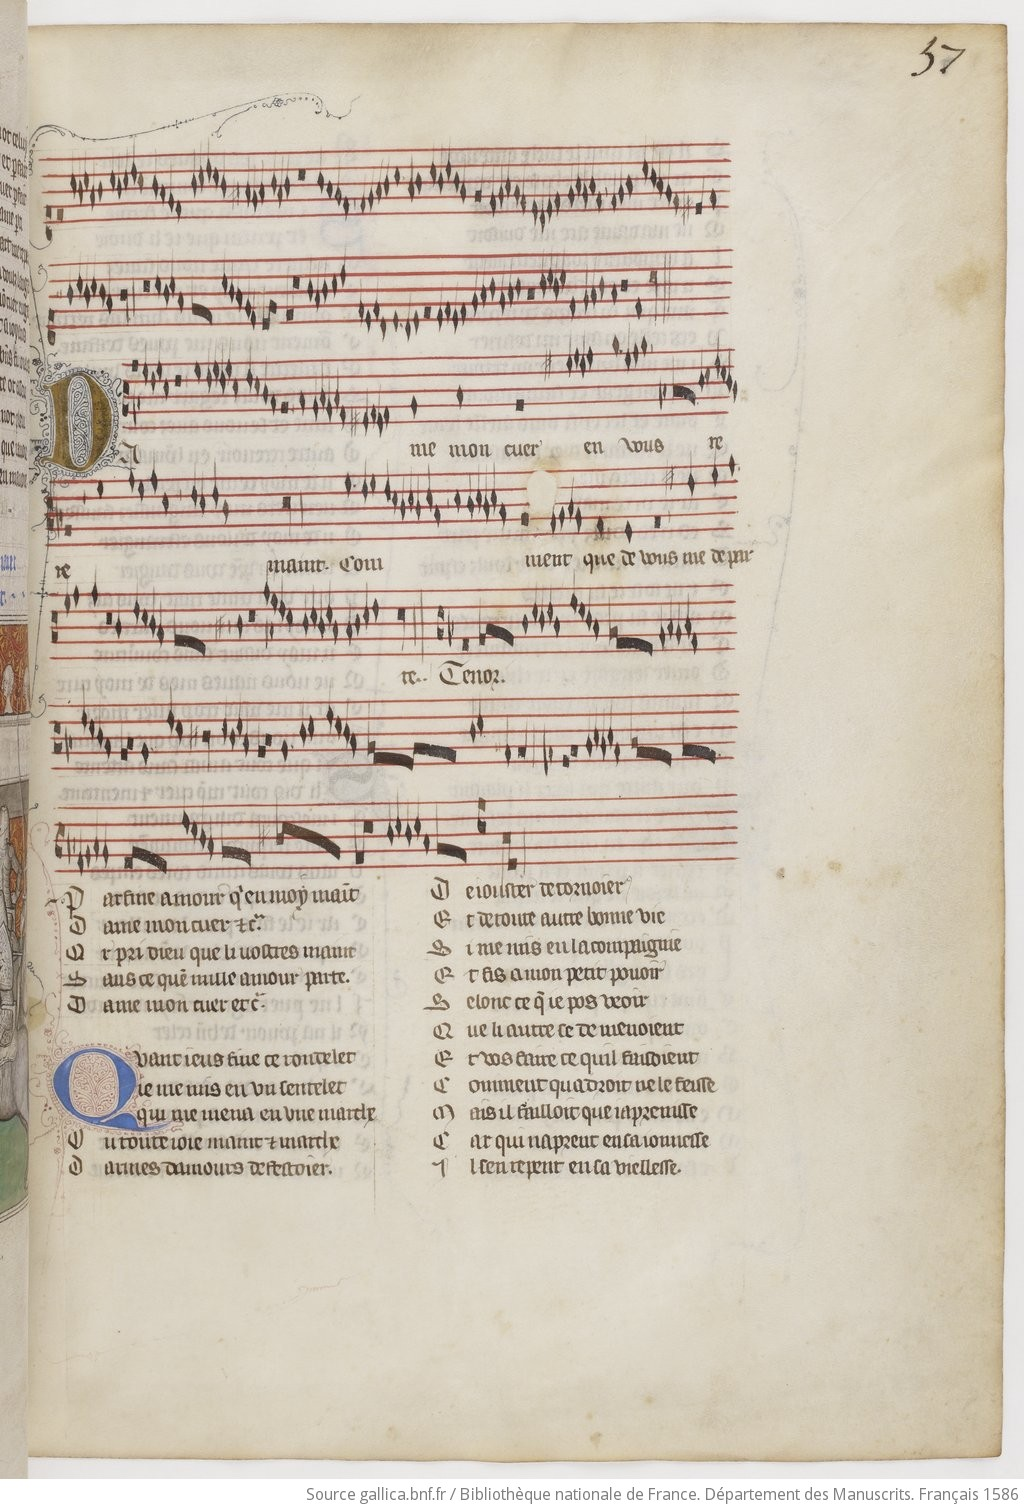 57
Dame mon cuer en vous re
re maint. Com ment que de vous me depar
te.. Tenor.
Par fine amour q̄ en moy maīt
Dame mon cuer ⁊c̄.
Et pri dieu que li vostres maint
Sans ce quē nulle amour parte.
Dame mon cuer et c̄.
Quant ieus fine ce rondelet
Ie me mis en vn sentelet
Qui me mena en vne marche
Ou toute ioie maint ⁊ marche
Darmes damours desestoier.
De iouster de tornoier
Et de toute autre bonne vie
Si me mis en la compaignie
Et fis a mon petit pouoir
Selonc ce q̄ ie pos veoir
Que li autre ce demenoient
Et vos faire ce quil faisoient
Comment qua droit ne le feisse
Mais il failloit que iapreinsse
Car qui naprent en sa ionnesse
Il sen repent en sa viellesse.
Source gallica.bnf.fr / Bibliothèque nationale de France. Département des Manuscrits. Français 1586